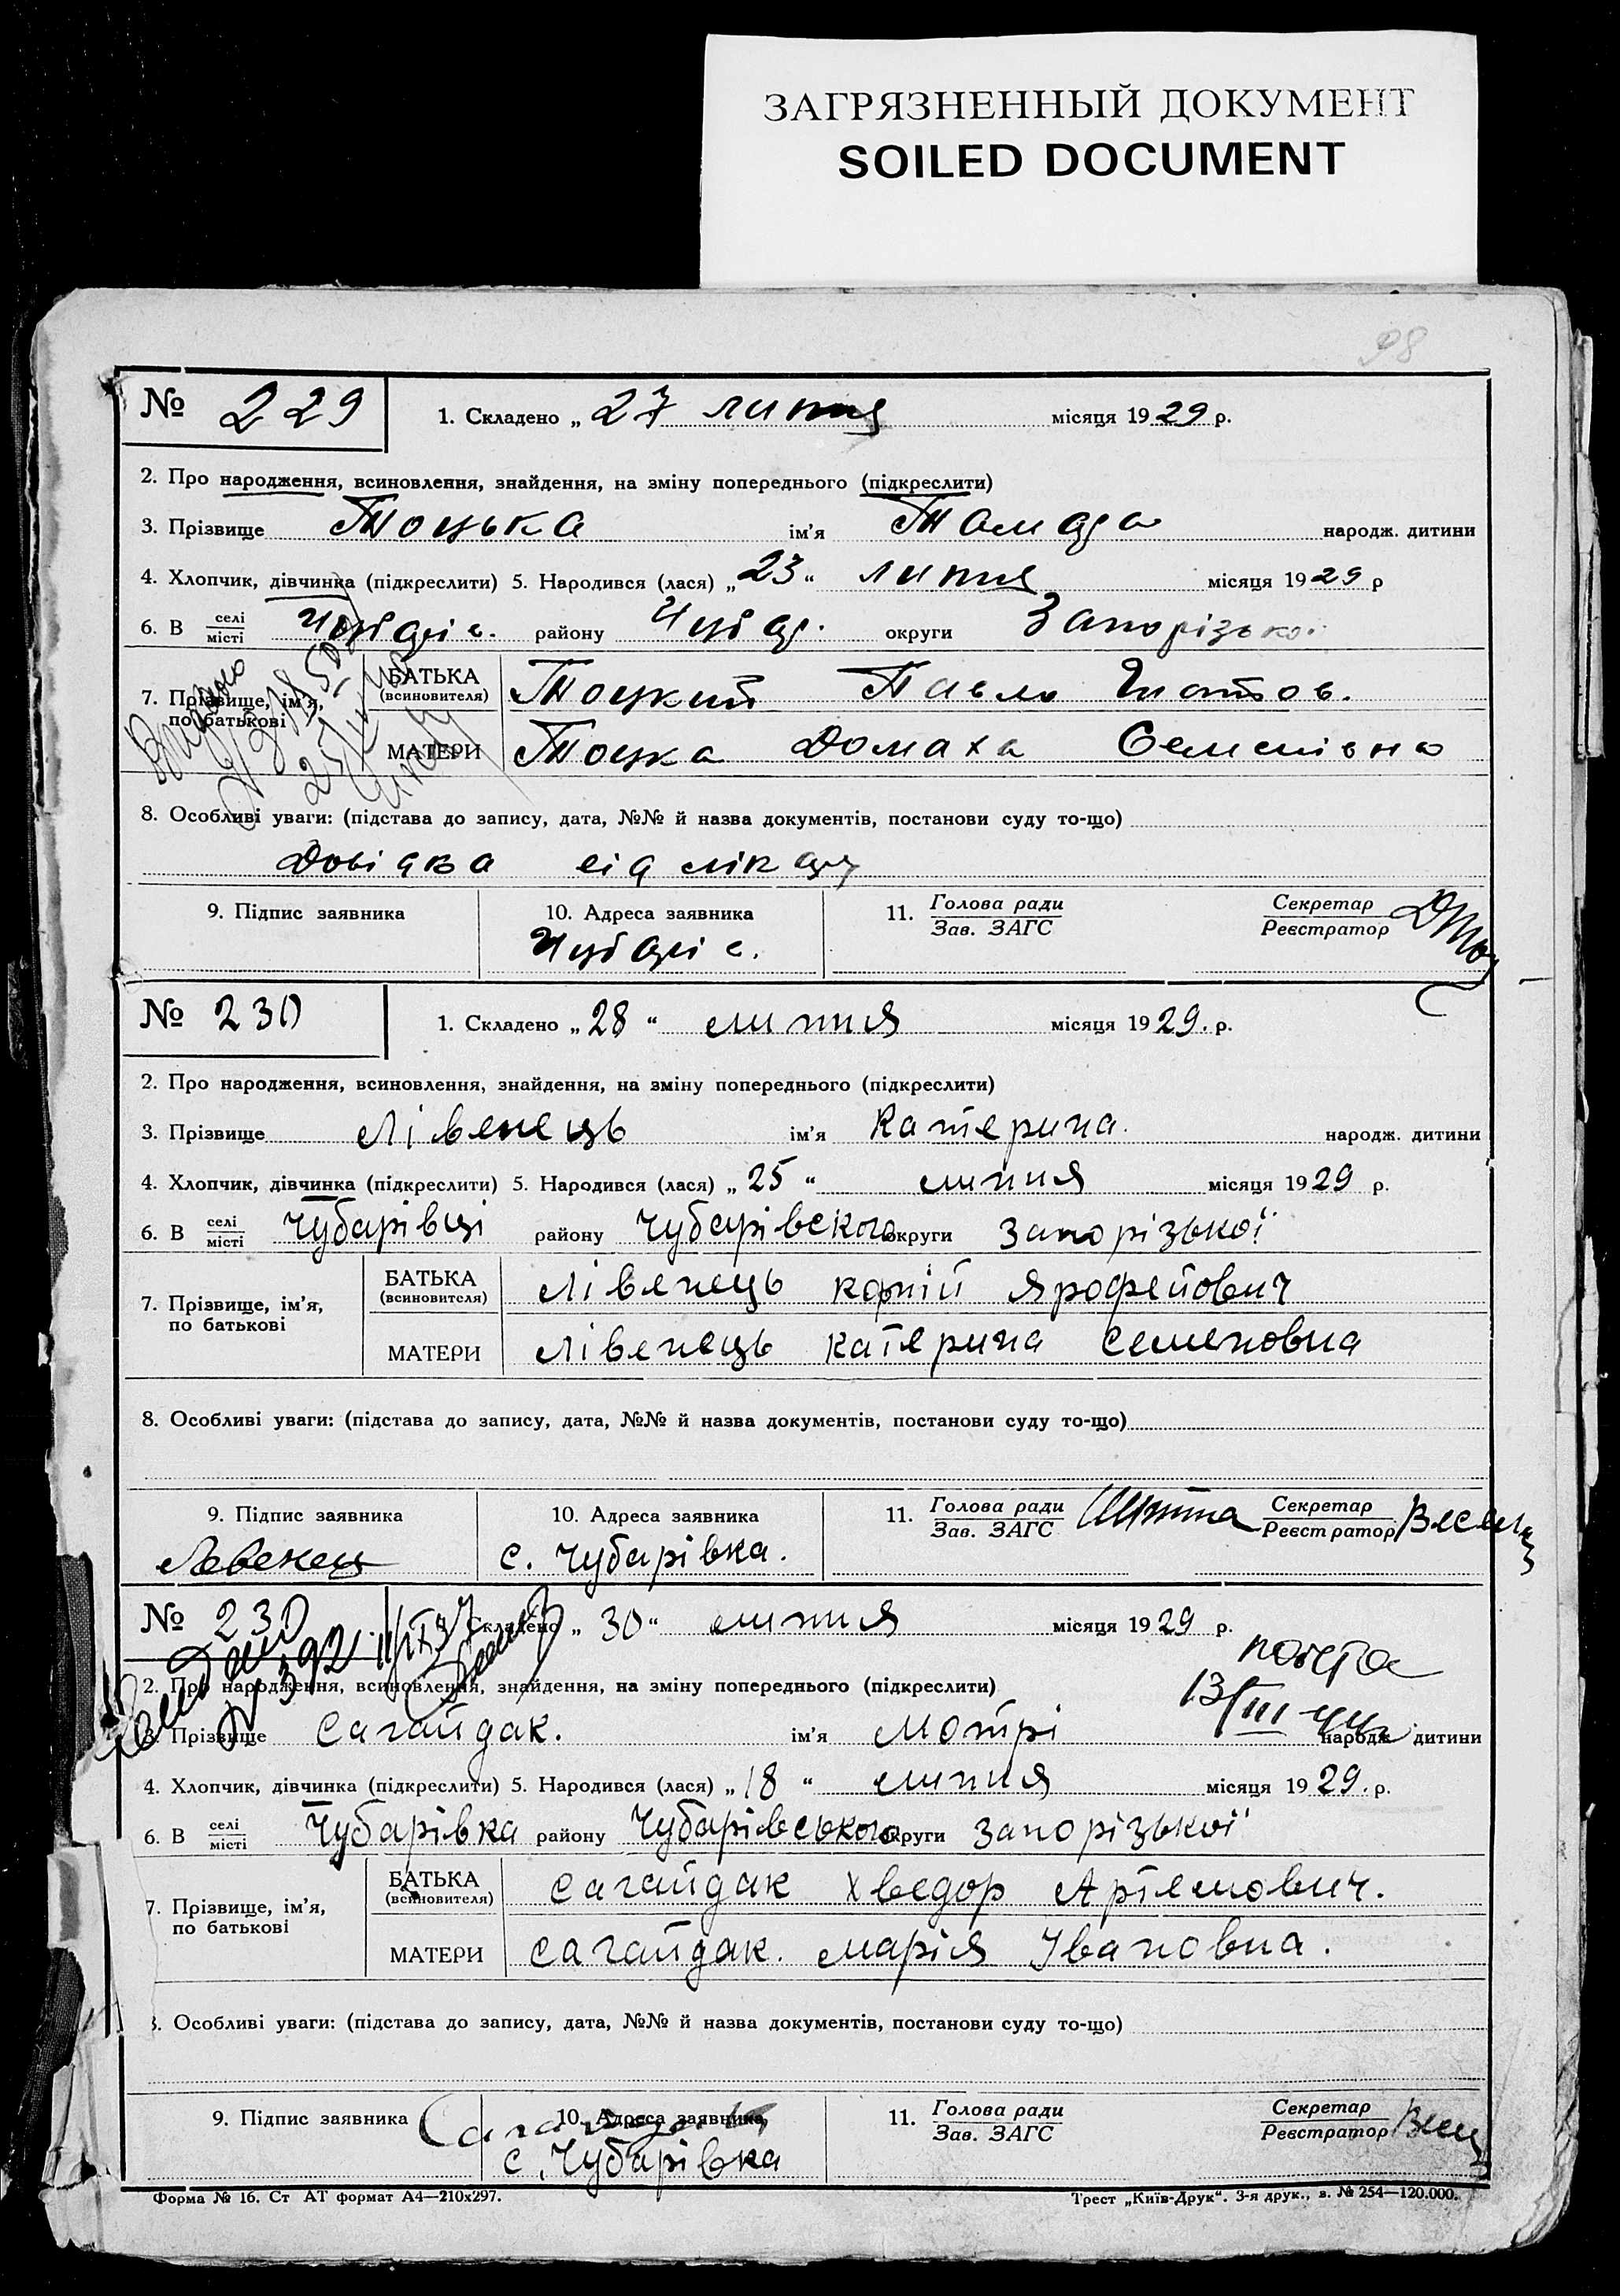 ЗАГРЯЗНЕННЫЙ ДОКУМЕНТ
SOILED DOCUMENT
98
№ 229 1. Складено „ 27 липня місяця 1929 р.
2. Про народження, всиновлення, знайдення, на зміну попереднього (підкреслити)
3. Прізвище Тоцька ім'я Тамара народж. дитини
4. Хлопчик, дівчинка (підкреслити) 5. Народився (лася) „ 23 “ липня місяця 1929 р
6. В селі місті Чубарів. району Чубар. округи Запорізької
7. Прізвище, ім'я, по батькові
БАТЬКА (всиновителя) Тоцкий Павло
МАТЕРИ Тоцка Домаха Семенівна
8. Особливі уваги: (підстава до запису, дата, №№ й назва документів, постанови суду то-що)
Довідка від лікаря
9. Підпис заявника 10. Адреса заявника 11. Голова ради Зав. ЗАГС Секретар Реєстратор
Чубарів.
№ 230 1. Складено „ 28 “ липня місяця 1929. р.
2. Про народження, всиновлення, знайдення, на зміну попереднього (підкреслити)
3. Прізвище Лівенець ім'я Катерина. народж. дитини
4. Хлопчик, дівчинка (підкреслити) 5. Народився (лася) „ 25 “ липня місяця 1929 р.
6. В селі місті Чубарівці району Чубарівского округи Запорізької
7. Прізвище, ім'я, по батькові
БАТЬКА (всиновителя) Лівенець Корній Ярофейович
МАТЕРИ Лівенець Катерина Семеновна
8. Особливі уваги: (підстава до запису, дата, №№ й назва документів, постанови суду то-що)
9. Підпис заявника 10. Адреса заявника 11. Голова ради Зав. ЗАГС Секретар Реєстратор
Левенец с. Чубарівка.
№ 230 Складено „ 30 “ липня місяця 1929 р.
N 392
2. Про народження, всиновлення, знайдення, на зміну попереднього (підкреслити)
13/III
3. Прізвище Сагайдак. ім'я Мотрі народж. дитини
4. Хлопчик, дівчинка (підкреслити) 5. Народився (лася) „ 18 “ липня місяця 1929. р.
6. В селі місті Чубарівка району Чубарівського округи Запорізької
7. Прізвище, ім'я, по батькові
БАТЬКА (всиновителя) Сагайдак Хведор Артемович.
МАТЕРИ Сагайдак. Марія Івановна.
8. Особливі уваги: (підстава до запису, дата, №№ й назва документів, постанови суду то-що)
9. Підпис заявника 10. Адреса заявника, 11. Голова ради Зав. ЗАГС Секретар Реєстратор
с. Чубарівка
Форма № 16. Ст АТ формат А4—210х297. Трест „Київ-Друк“. 3-я друк., з. № 254—120.000.